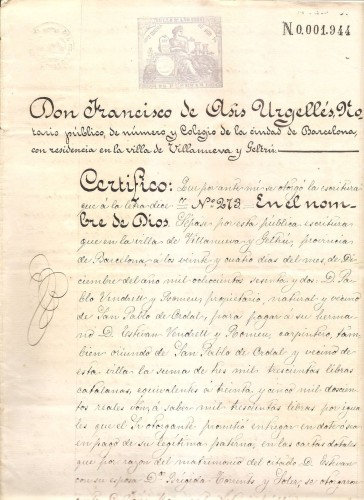 N.0.001.944
Don Francisco de Asis Urgellés, No-
tario público, de número y Colegio de la ciudad de Barcelona,
con residencia en la villa de Villanueva y Geltrú.
Certifico: Que por ante mi se otorgó la escritura
que á la letra dice: Nº 273. En el nom-
bre de Dios. Sépase por esta pública escritura
que en la villa de Villanueva y Geltrú, provincia
de Barcelona, á los veinte y cuatro dias del mes de Di-
ciembre del año mil ochocientos sesenta y dos: D. Pa-
blo Vendrell y Romeu, propietario, natural y vecino
de San Pablo de Ordal, para pagar á su herma-
no D. Estevan Vendrell y Romeu, carpintero, tam-
bien oriundo de San Pablo de Ordal y vecino de
esta villa la suma de tres mil trescientas libras
catalanas, equivalentes á treinta y cinco mil doscien-
tos reales von, á saber mil trescientas libras por igua-
les que el Sr. otorgante prometió entregar en
en pago de su legítima paterna, en las cartas dotales
que por razon del matrimonio del citado D. Estevan
con su esposa Dª Brígida Torrents y Soler, se otorgaron